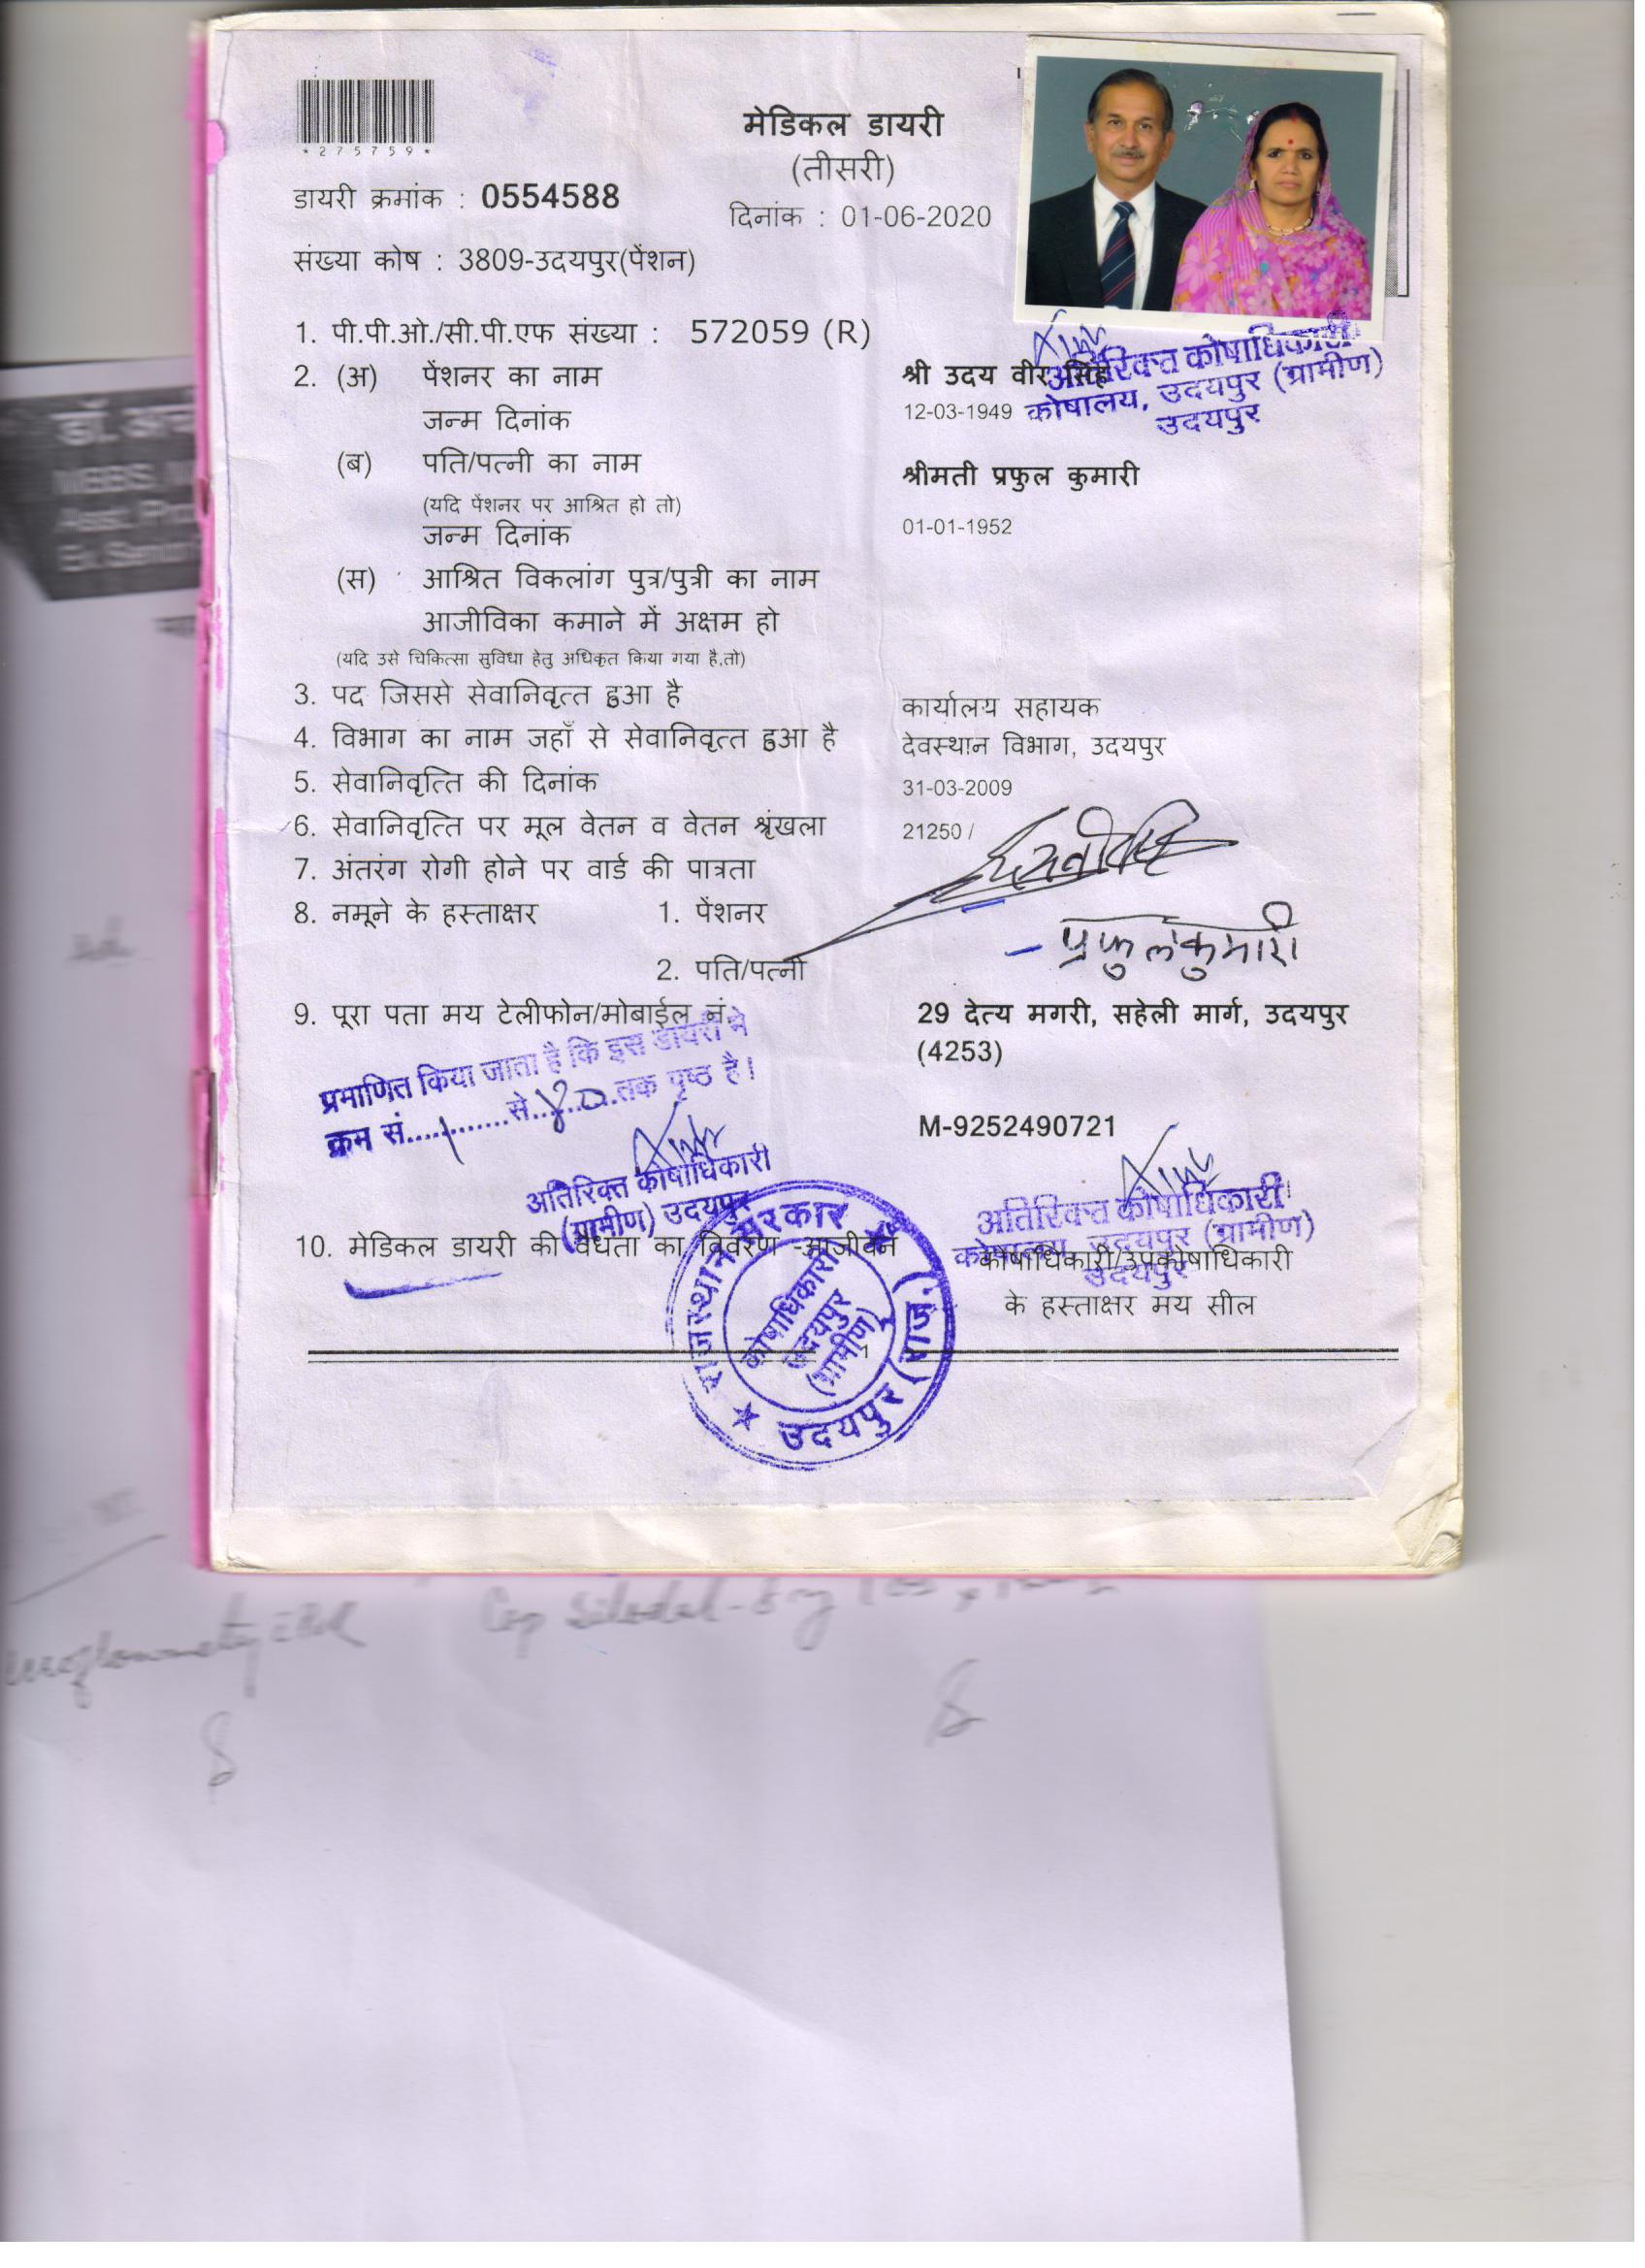 * 2 7 5 7 5 9 *
मेडिकल डायरी
(तीसरी)
डायरी क्रमांक : 0554588
दिनांक : 01-06-2020
संख्या कोष : 3809-उदयपुर(पेंशन)
1. पी.पी.ओ./सी.पी.एफ संख्या : 572059 (R)
अतिरिक्त कोषाधिकारी
कोषालय, उदयपुर (ग्रामीण)
उदयपुर
2. (अ) पेंशनर का नाम श्री उदय वीर सिंह
जन्म दिनांक 12-03-1949
(ब) पति/पत्नी का नाम श्रीमती प्रफुल कुमारी
(यदि पेंशनर पर आश्रित हो तो)
जन्म दिनांक 01-01-1952
(स) आश्रित विकलांग पुत्र/पुत्री का नाम
आजीविका कमाने में अक्षम हो
(यदि उसे चिकित्सा सुविधा हेतु अधिकृत किया गया है,तो)
3. पद जिससे सेवानिवृत्त हुआ है कार्यालय सहायक
4. विभाग का नाम जहाँ से सेवानिवृत्त हुआ है देवस्थान विभाग, उदयपुर
5. सेवानिवृत्ति की दिनांक 31-03-2009
6. सेवानिवृत्ति पर मूल वेतन व वेतन श्रृंखला 21250 /
7. अंतरंग रोगी होने पर वार्ड की पात्रता
8. नमूने के हस्ताक्षर 1. पेंशनर
- प्रफुलकुमारी
2. पति/पत्नी
9. पूरा पता मय टेलीफोन/मोबाईल नं. 29 देत्य मगरी, सहेली मार्ग, उदयपुर
(4253)
प्रमाणित किया जाता है कि इस डायरी में
क्रम सं....1........से...80..तक पृष्ठ है।
M-9252490721
अतिरिक्त कोषाधिकारी
(ग्रामीण) उदयपुर
अतिरिक्त कोषाधिकारी
कोषालय, उदयपुर (ग्रामीण)
उदयपुर
10. मेडिकल डायरी की वैधता का विवरण -आजीवन
कोषाधिकारी/उपकोषाधिकारी
के हस्ताक्षर मय सील
राजस्थान सरकार
कोषाधिकारी
उदयपुर
(ग्रामीण)
उदयपुर (राज.)
1
डॉ.
MBBS